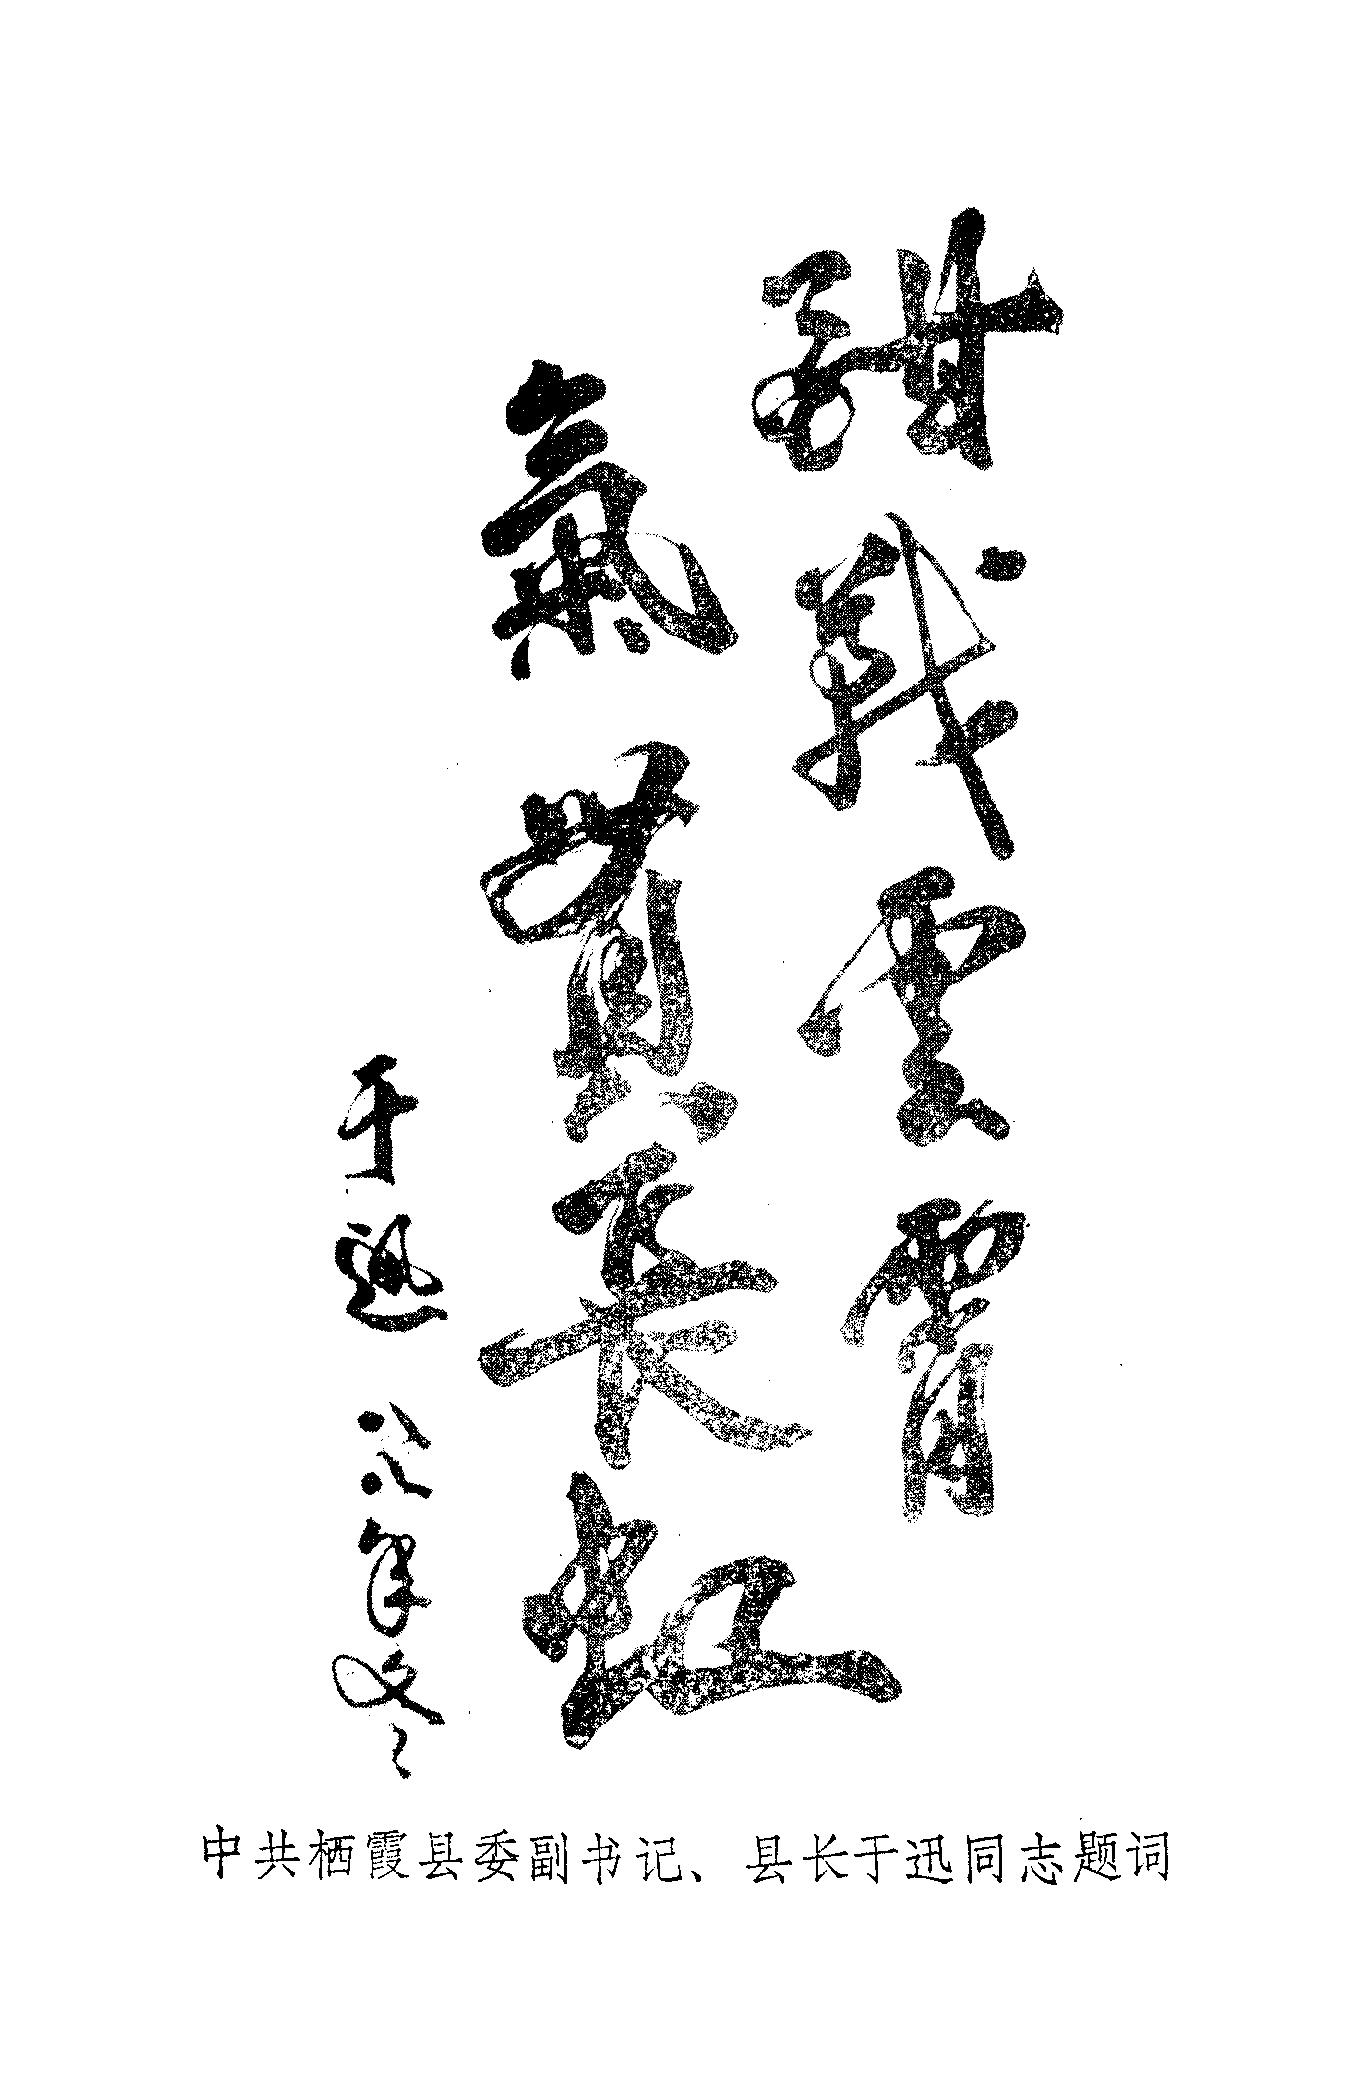 酣戰雲霄
氣貫長虹
于迅 八八年冬
中共栖霞县委副书记、县长于迅同志题词